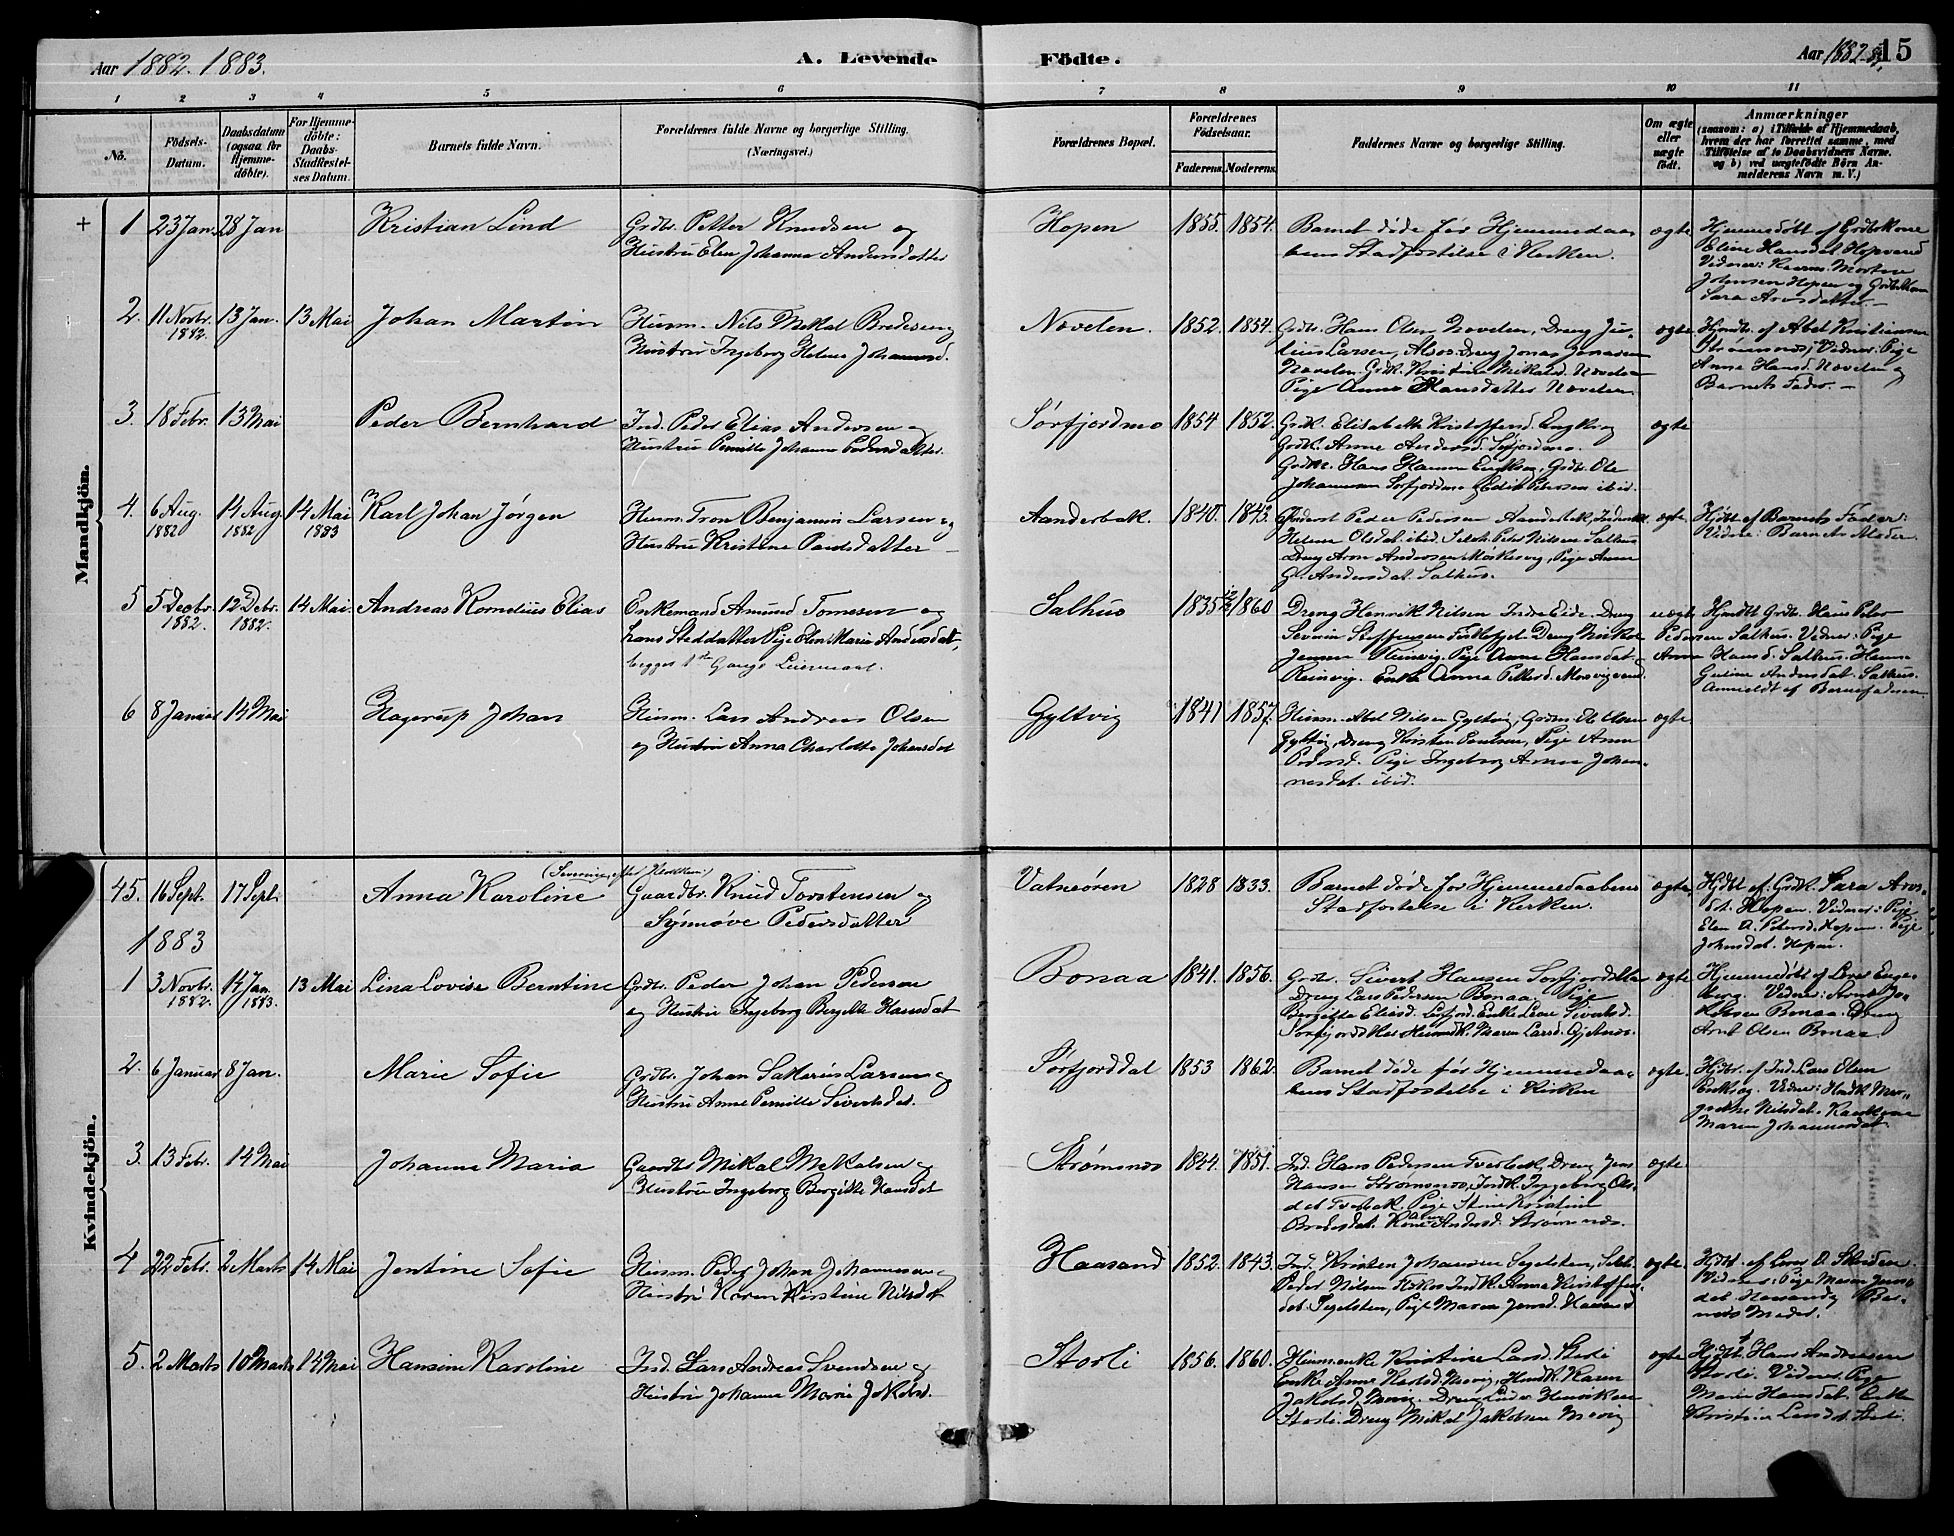 Aar 1882. 1883.
A. Levende
Födte.
Aar 1882-83.
15
1 2 3 4 5 6 7 8 9 10 11
No.
Födsels-
Datum.
Daabsdatum
(ogsaa for
Hjemme-
döbte).
For Hjemme-
döbte:
Daabs-
Stadfæstel-
ses Datum.
Barnets fulde Navn.
Forældrenes fulde Navne og borgerlige Stilling.
(Næringsvei.)
Forældrenes Bopæl.
Forældrenes
Födselsaar.
Faderens. Moderens.
Faddernes Navne og borgerlige Stilling.
Om ægte
eller
uægte
födt.
Anmærkninger
(saasom: a) i Tilfælde af Hjemmedaab,
hvem der har forrettet samme, med
Tilföielse af to Daabsvidners Navne.
og b) ved uægtefödte Börn An-
melderens Navn m. V.)
Mandkjön.
+ 1 23 Jan. 28 Jan
Kristian Lind
Grdbr. Petter Knudsen og
Hustru Elen Johanna Andersdatter
Hopen
1855. 1854.
Barnet døde før Hjemmedaa-
bens Stadfæstelse i Kirken.
ægte
Hjemmedøbt af Grdbkone
Eline Hansdat. Hopvand
Vidner:
Johnsen Hopen og
Sara Arnsdatter
2. 11 Novbr.
1882.
13 Jan. 13 Mai
Johan Martin
Husm. Nils Mikal Bredesen og
Hustru Ingeborg Helene Johannesd.
Novelen.
1852. 1854.
Grdbr. Hans Olsen Novelen, Dreng Ju-
lius Larsen, Alsos. Dreng Jonas Jonassen
Novelen. Grdk. Kristine Mikalsd. Novelen
Pige Anna Hansdatter Novelen
ægte
Hjmdbt. af Abel Kristiansen
Strømsnes, Vidner: Pige
Anna Hansd. Novelen og
Barnets Fader. —
3. 18 Febr. 13 Mai
Peder Bernhard
Ind. Peder Elias Andersen og
Hustru Pernille Johanna Pedersdatter.
Sørfjordmo
1854 1852.
Grdk. Elisabeth Kristoffersd. Engkrog
Grdk. Anne Andersd. Sørfjordmo.
Hans Hansen Grdbr. Ole
Johannesen Sørfjordmo Petersen ibid.
ægte
4. 6 Aug.
1882
14 Aug.
1882
14 Mai
1883
Karl Johan Jørgen
Husm. Tron Benjamin Larsen og
Hustru Kristine Paulsdatter —
Aanderbak.
1840. 1843.
Inderst Peder Pedersen
Helene Olsdat. ibid. Selvk. Peder Nilsen Salhus
Dreng Aron Andersen Mørkesvig, Pige Anne
G. Andersdat. Salhus.
ægte.
Hjdbt af Barnets Fader:
Vidne: Barnets Moder.
5 5 Decbr.
1882.
12 Debr.
1882.
14 Mai.
Andreas Kornelius Elias
Enkemand Amund Tomesen og
hans Steddatter Pige Elen Maria Andersdat.,
begges 1ste Gangs Leiermaal.
Salhus
1835 1860
Dreng Henrik Nilsen Indre Eide. Dreng
Severin Steffensen Dreng
Jensen Reinvig. Pige Anne Hansdat.
Reinvig. Enke Anna Pettersd.
uægte
Hjmdbt Grdbr. Hans Peter
Pedersen Salhus. Vidner: Pige
Anne Hansd. Salhus.
Andersdat. Salhus.
Anmeldt af Barnefaderen.
6 8 Januar 14 Mai
Hagerup Johan
Husm. Lars Andreas Olsen
og Hustru Anna Charlotte Johansdat
Gyltvig
1841 1857.
Husm. Abel Nilsen Gyltvig,
Gyltvig, Dreng Kristen Paulsen, Pige Anne
Pedersd. Pige Ingeborg Anna Johan-
nesdat. ibid.
ægte
Kvindekjön.
45. 16 Sept. 17 Sept.
Anna Karoline
Gaardbr. Knud Torstensen og
Synnøve Pedersdatter
Vatnøren
1828 1833.
Barnet døde før Hjemmedaabens
Stadfæstelse i Kirken.
ægte.
Hjdbt af Grdk. Sara Arns-
dt. Hopen. Vidner: Pige
Elen A. Petersd. Hopen. Pige
Johnsdat. Hopen.
1883
1 3 Novbr.
1882.
14 Jan.
1883.
13 Mai
Lina Lovise Berntine
Grdbr. Peder Johan Pedersen
og Hustru Ingeborg Bergitte Hansdat
Bonaa
1841. 1856.
Grdbr. Sivert Hansen Sørfjorddal
Dreng Lars Pedersen Bonaa. Pige
Bergitte Eliasd. Enke Lene Sivertsd.
Sørfjorddal Maren Larsd.
ægte
Hjemmedøbt af
Vidner: Arnt Ja-
kobsen Bonaa. Dreng
Arnt Olsen Bonaa.
2. 6 Januar 8 Jan.
Marie Sofie
Grdbr. Johan Sakarius Larsen og
Hustru Anne Pernille Sivertsdat.
Sørfjorddal
1853 1862.
Barnet døde før Hjemmedaa-
bens Stadfæstelse i Kirken
ægte.
Hjdbt. af Ind. Lars Olsen
Vidner: Mar-
grethe Nilsdat.
Maren Johannesdat.
3. 13 Febr. 14 Mai
Johanna Maria
Gaardbr Mikal Mikalsen og
Hustru Ingeborg Bergitte Hansdat
Strømsnes
1844. 1851.
Ind. Hans Pedersen Tverbak, Dreng Jens
Hansen Strømsnes, Indk. Ingeborg Ols-
dat Tverbak, Pige Stine Kirstine
Bredesdat. Kone Andersd. Strømsnes.
ægte.
4 22 Febr. 2 Marts 14 Mai
Jentine Sofie
Husm. Peder Johan Johannesen og
Hustru Karen Kirstine Nilsdat
Haasand
1852. 1843.
Ind. Kristen Johansen Segelsten,
Peder Nilsen Indk. Anne Kristoffers-
dat. Segelsten, Pige Maren Jensd. Haasand
ægte.
Hjdbt. af
Vidner: Pige Maren Jens-
dat Haasand og Bar-
nets Moder.
5. 2 Marts 10 Marts 14 Mai
Hansine Karoline
Ind. Lars Andreas Svendsen og
Hustru Johanna Marie Jakobsd.
Storli
1856. 1860.
Husm.enke Kristine Larsd. Storli
Enke Anne Karen
Jakobsd. Dreng Henriksen
Storli. Dreng Mikal Jakobsen
ægte
Hjdbt. Hans Andreassen
Storli. Vidner: Pige
Maria Hansdat. Enke
Kristine Larsdat. Storli.